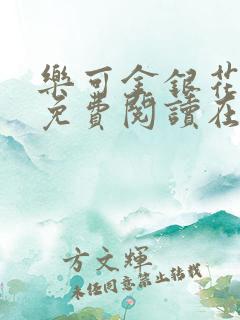 樂可金銀花
免費閱讀在
方文輝
未經同意禁止轉載